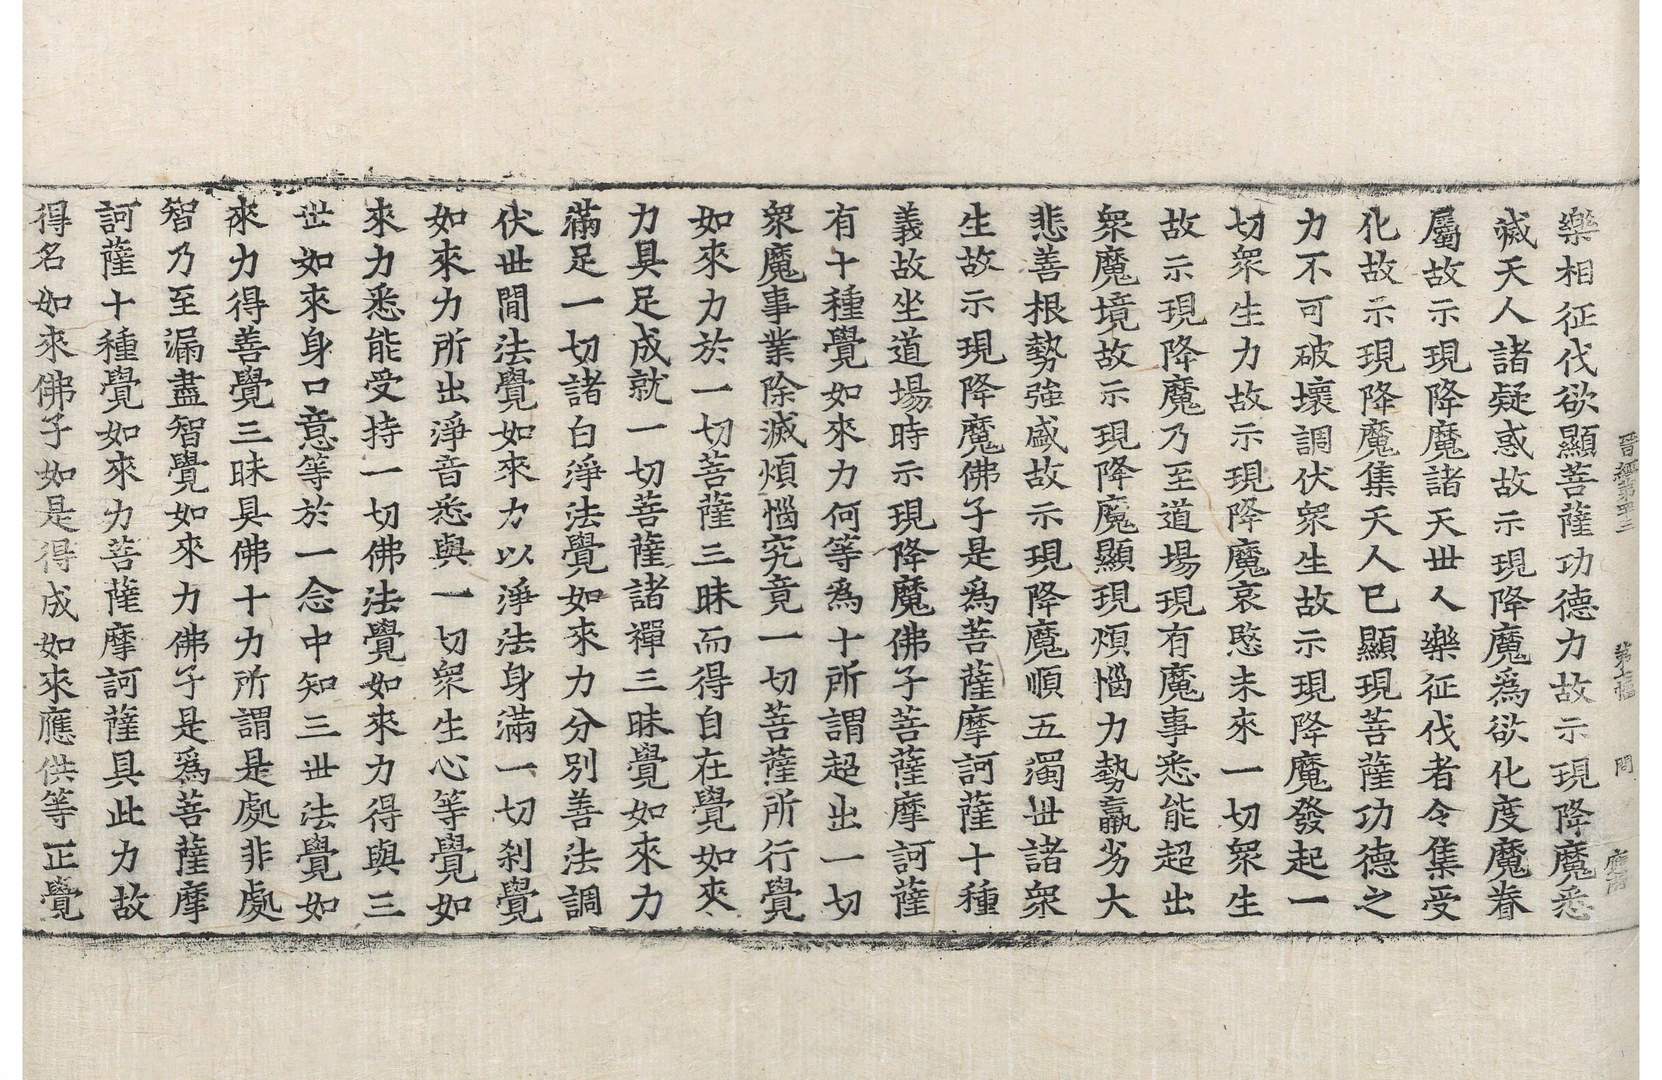 晉經第四十三
樂相征伐欲顯菩薩功德力故示現降魔悉
滅天人諸疑惑故示現降魔爲欲化度魔眷
屬故示現降魔諸天世人樂征伐者令集受
化故示現降魔集天人已顯現菩薩功德之
力不可破壞調伏衆生故示現降魔發起一
切衆生力故示現降魔哀愍未來一切衆生
故示現降魔乃至道場現有魔事悉能超出
衆魔境故示現降魔顯現煩惱力勢羸劣大
悲善根勢強盛故示現降魔順五濁世諸衆
生故示現降魔佛子是爲菩薩摩訶薩十種
義故坐道場時示現降魔佛子菩薩摩訶薩
有十種覺如來力何等爲十所謂超出一切
衆魔事業除滅煩惱究竟一切菩薩所行覺
如來力於一切菩薩三昧而得自在覺如來
力具足成就一切菩薩諸禪三昧覺如來力
滿足一切諸白淨法覺如來力分別善法調
伏世間法覺如來力以淨法身滿一切刹覺
如來力所出淨音悉與一切衆生心等覺如
來力悉能受持一切佛法覺如來力得與三
世如來身口意等於一念中知三世法覺如
來力得善覺三昧具佛十力所謂是處非處
智乃至漏盡智覺如來力佛子是爲菩薩摩
訶薩十種覺如來力菩薩摩訶薩具此力故
得名如來佛子如是得成如來應供等正覺